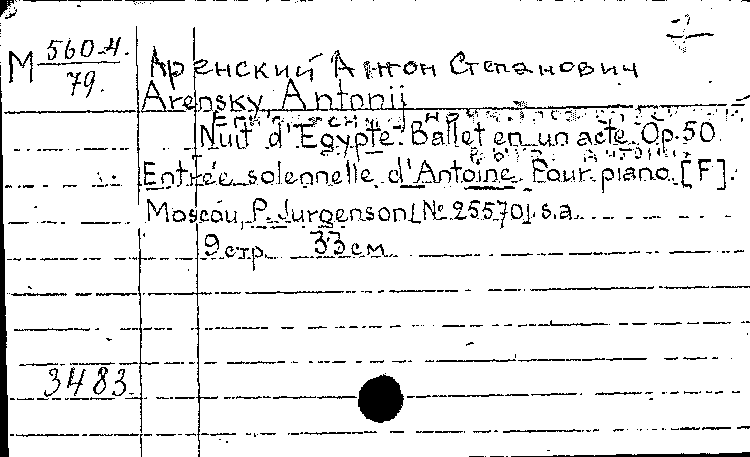 M 560.4.
79.
Аренский Антон Степанович
Arensky, Antonij
Nuit d'Egypte. Ballet en un acte. Op. 50.
Entrée solennelle d'Antoine. Pour piano. [F].
Moscou, P. Jurgenson [№ 25570] s.a.
9 стр. 33 см.
3483